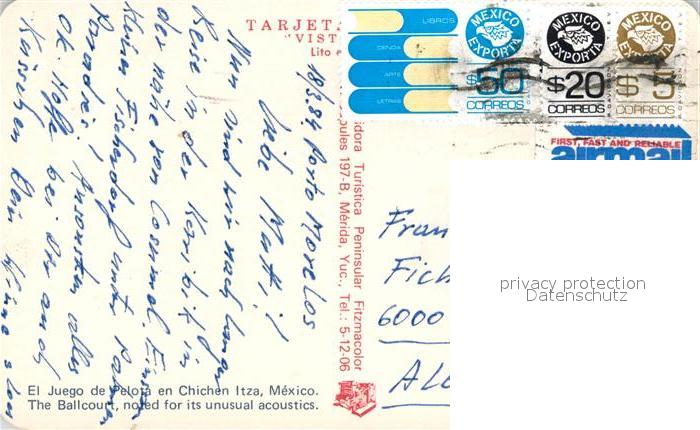 TARJETA
"VISTA
Lito
LIBROS
CIENCIA
ARTE
LETRAS
MEXICO EXPORTA
$50
CORREOS
MEXICO EXPORTA
$20
CORREOS
MEXICO EXPORTA
$5
CORREOS
FIRST, FAST AND RELIABLE
airmail
18/3.84 Porto Morelos
Liebe Mutti!
Nun sind wir nach langer
Reise in der Karibik in
der nähe von Cosumel.
kleines Fischerdorf unter Palmen
Paradies! Ansonsten alles
ok. Hoffe bei Dir auch
Küsschen Dein
idora Turística Peninsular Fitzmacolor
pules 197-B, Mérida, Yuc., Tel.: 5-12-06
Fran
Fich
6000
privacy protection
Datenschutz
El Juego de Pelota en Chichen Itza, México.
The Ballcourt, noted for its unusual acoustics.